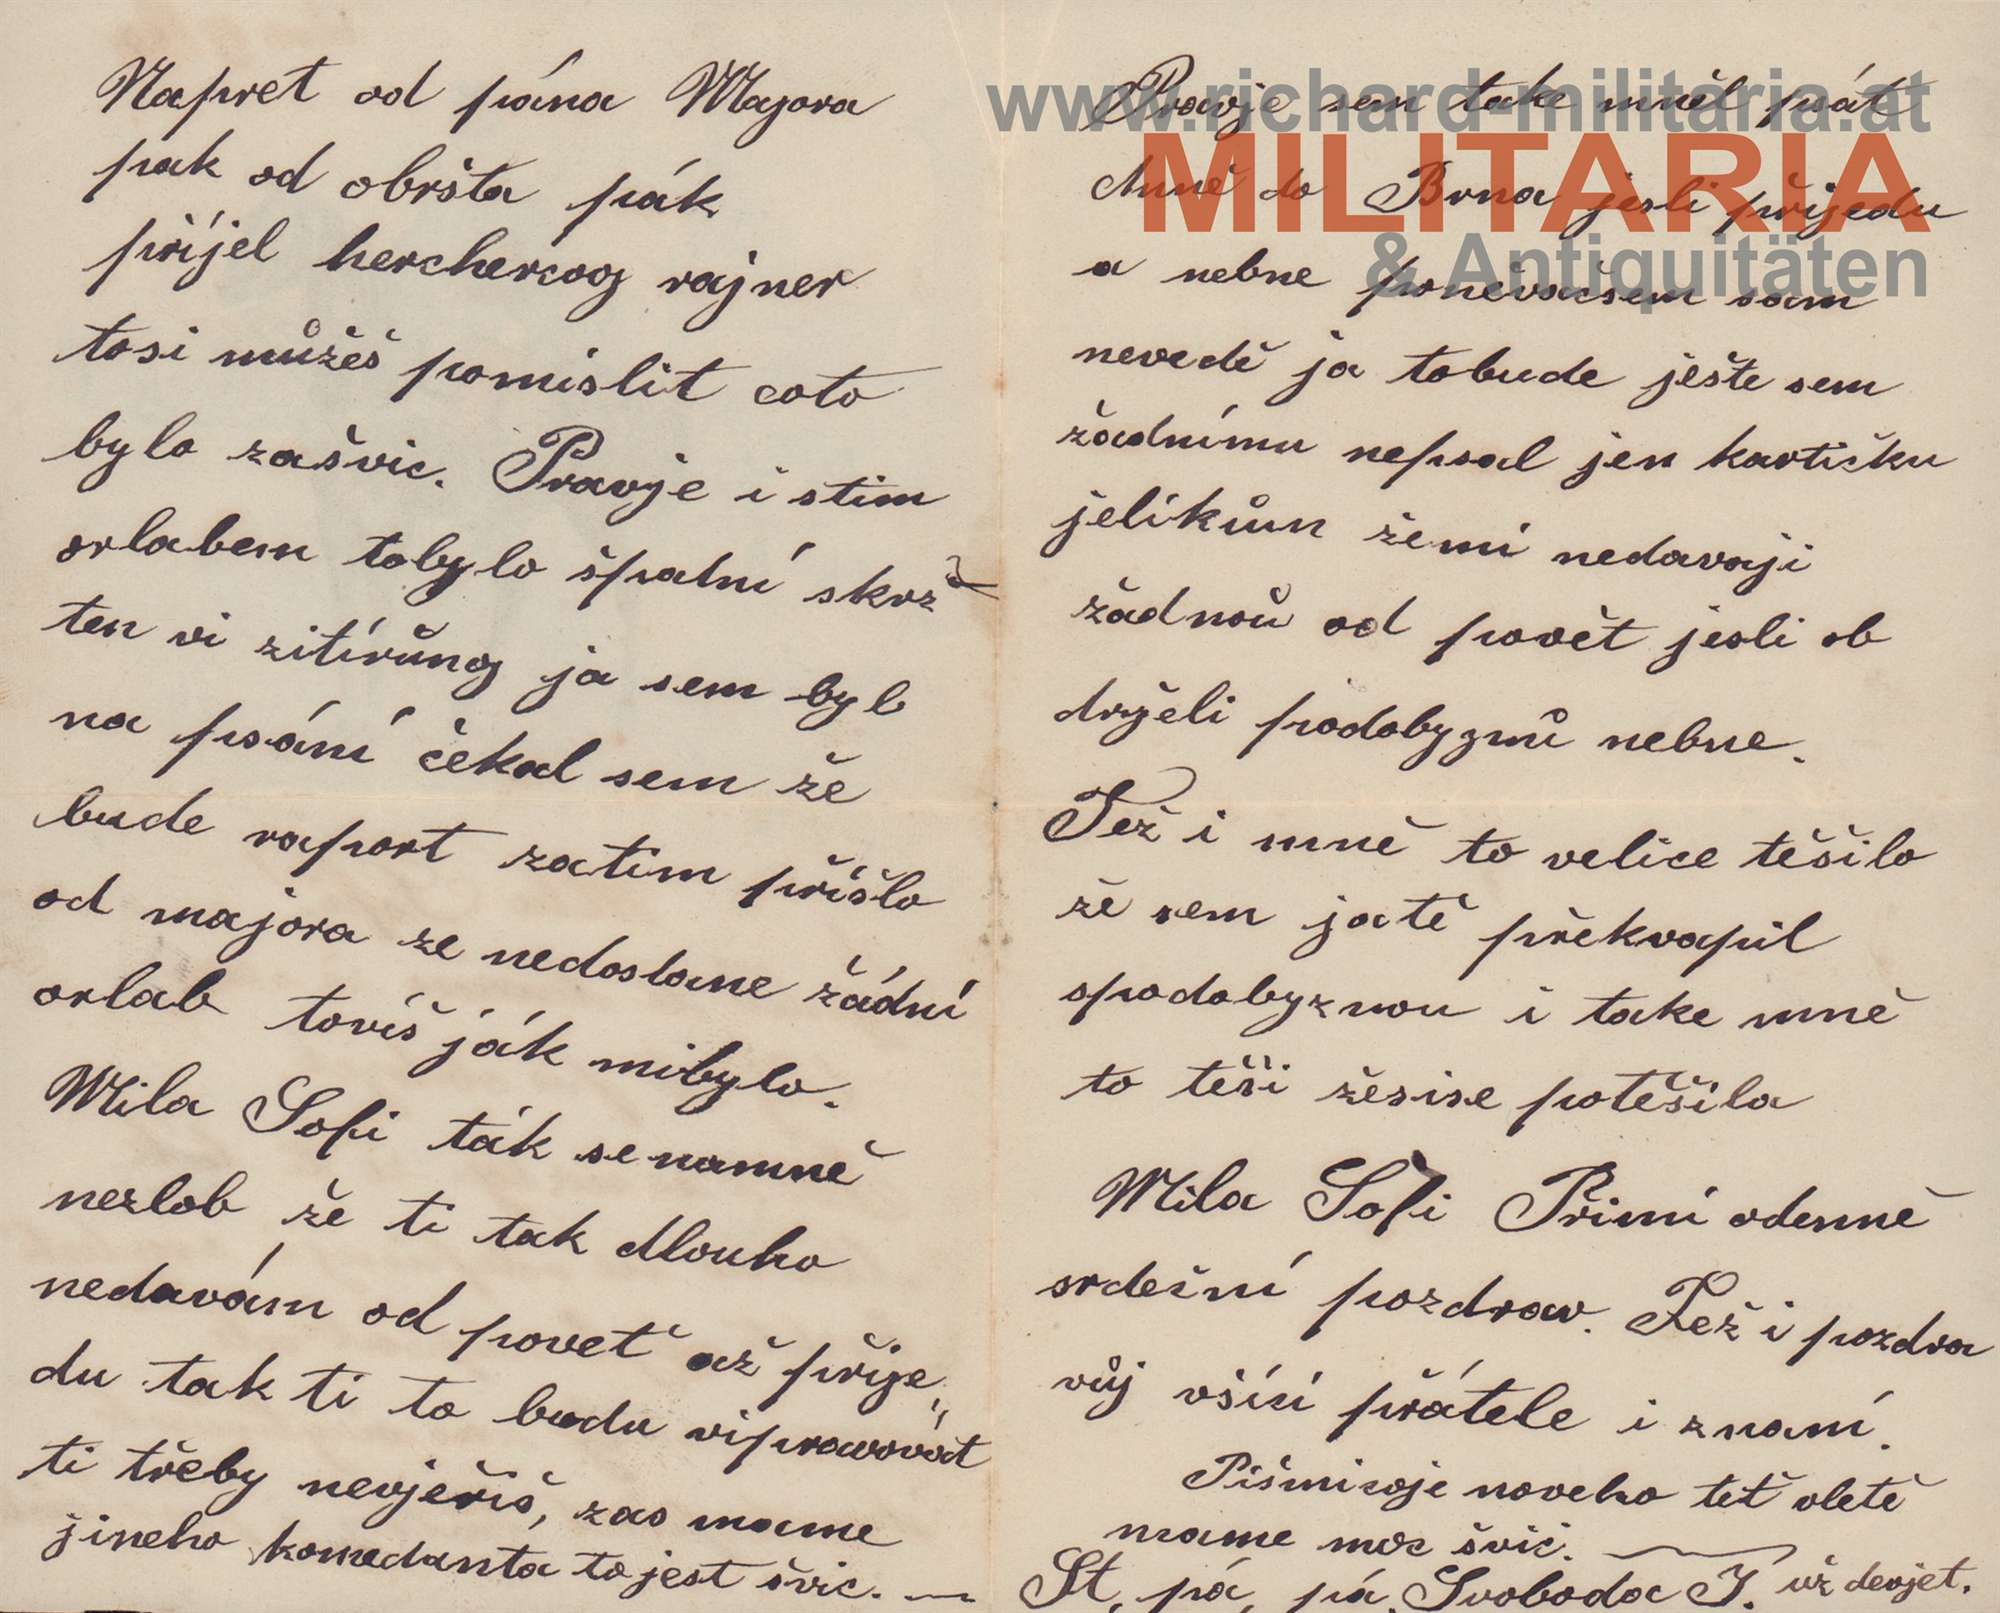 Napret od pána Majora
pak od obršta pák
přijel hercherzog rajner
tosi můžeš pomislit coto
bylo zašvic. Pravje i stim
orlabem tobylo špatní skrz
ten vi zitírůng ja sem byl
na psání čekal sem že
bude raport zatim příšlo
od majora ze nedostane žádní
orlab tovíš ják mibylo.
Mila Sofi ták se namně
nezlob že ti tak dlouho
nedavám od poveť až přije„
du tak ti to budu vipravovat
ti třeby nevjeřiš, zas mame
jineho komedanta tojest švic. —
Pravje sem take mněl psát
Anně do Brna jesli přijedu
a nebne poněvačsem sám
nevedě ja tobude ješte sem
žadnímu nepsal jen kartičku
jelikůn žemi nedavaji
žádnoů od povět jesli ob
drželi podobyznů nebne.
Též i mně to velice těšilo
že sem jatě překvapil
spodobyznou i take mně
to těši žesise potěšila
Mila Sofi Přimi odemně
srdešní pozdrav. Též i pozdra
vůj všíní přátele i znamí.
Pišmicoje noveho teť vletě
mame moc švic. —
St, pá, pá. Svoboda J. už devjet.
www.richard-militaria.at
MILITARIA
& Antiquitäten